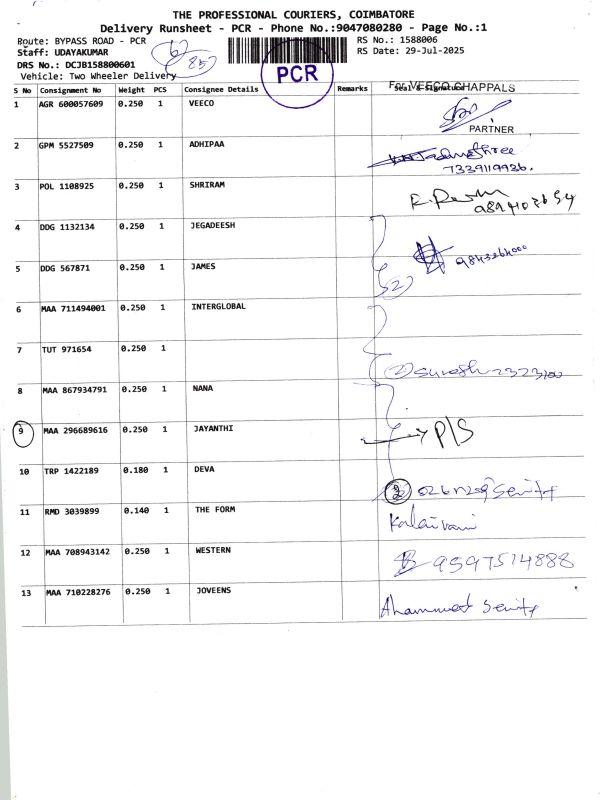 THE PROFESSIONAL COURIERS, COIMBATORE
Delivery Runsheet - PCR - Phone No.:9047080280 - Page No.:1
Route: BYPASS ROAD - PCR
Staff: UDAYAKUMAR
DRS No.: DCJB158800601
Vehicle: Two Wheeler Delivery
RS No.: 1588006
RS Date: 29-Jul-2025
PCR
S No Consignment No Weight PCS Consignee Details Remarks Seal & Signature
For VEECO CHAPPALS
1 AGR 600057609 0.250 1 VEECO
PARTNER
2 GPM 5527509 0.250 1 ADHIPAA
7339119936.
3 POL 1108925 0.250 1 SHRIRAM
4 DDG 1132134 0.250 1 JEGADEESH
5 DDG 567871 0.250 1 JAMES
2
6 MAA 711494001 0.250 1 INTERGLOBAL
7 TUT 971654 0.250 1
8 MAA 867934791 0.250 1 NANA
9 MAA 296689616 0.250 1 JAYANTHI P/S
10 TRP 1422189 0.180 1 DEVA
11 RMD 3039899 0.140 1 THE FORM Kalaivani
12 MAA 708943142 0.250 1 WESTERN 9597514888
13 MAA 710228276 0.250 1 JOVEENS